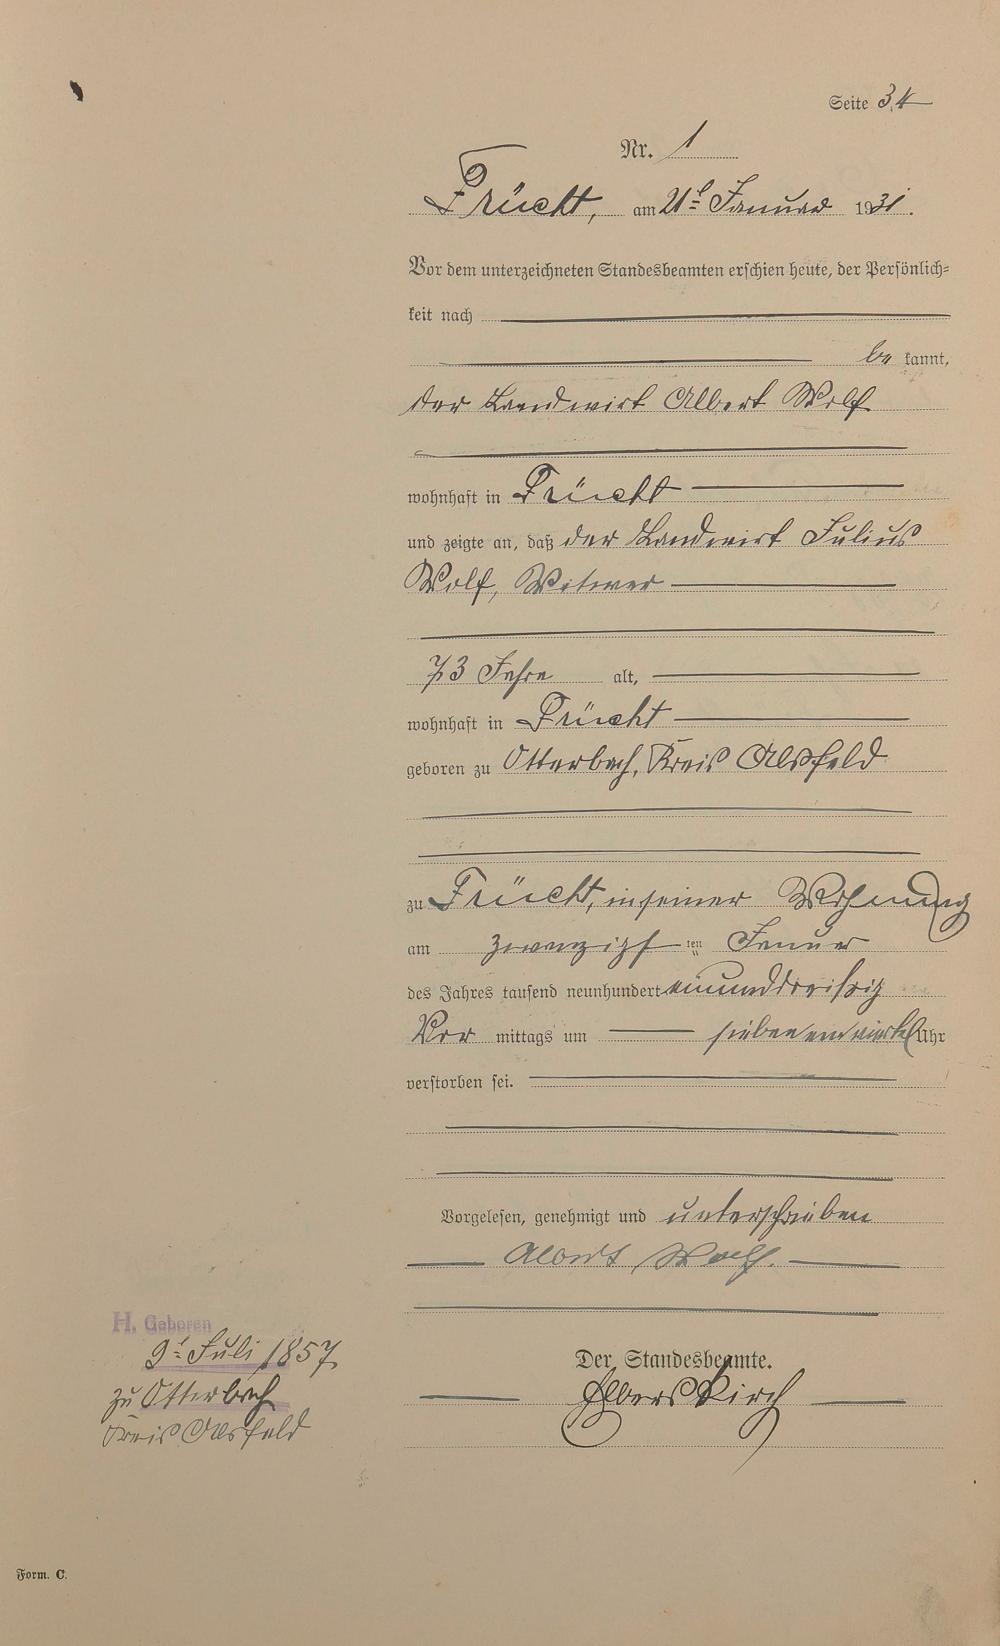 Seite 34
Nr. 1
Frücht, am 21ᵗ Januar 1931.
Vor dem unterzeichneten Standesbeamten erschien heute, der Persönlich=
keit nach
be kannt,
der Landwirt Albert Wolf
wohnhaft in Frücht
und zeigte an, daß der Landwirt Julius
Wolf, Witwer
73 Jahre alt,
wohnhaft in Frücht
geboren zu Otterbach, Kreis Alsfeld
zu Frücht, in seiner Wohnung
am zwanzigst ten Januar
des Jahres tausend neunhundert einunddreißig
Vor mittags um sieben ein viertel Uhr
verstorben sei.
Vorgelesen, genehmigt und unterschrieben
Albert Wolf.
H. Geboren
9ᵗ Juli 1857
zu Otterbach
Kreis Alsfeld
Der Standesbeamte.
Elberskirch
Form. C.